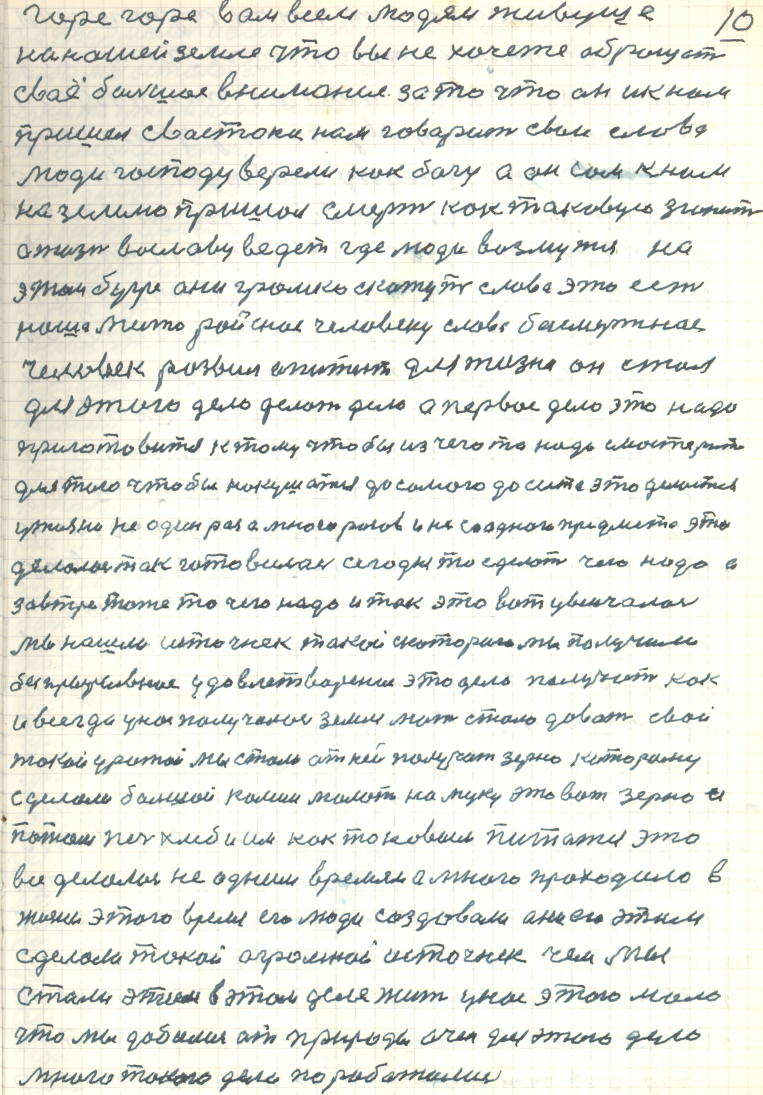 горе горе вам всем людям живуще 10
на нашей земле что вы не хочете аброщат
сваё балшое внимание. за то что ан ик нам
пришел свастока нам говарит свои слова
люди господу верели как богу а он сам к нам
на землю пришол смерт как таковую згонит
а жизт вославу ведет где люди возмутя на
этом бугре ани громко скажут слова это ест
наша место райское человеку слава бесмертное
человек развил апитит для жизни он стал
для этого дело делат дело а первое дело это надо
приготовится к тому чтобы из чего то надо смастерит
для того чтобы накушатся до самого досита это делается
у жизни не один раз а много разов и не со адного предмета это
делалос так готовилас сегодня то сделат чего надо а
завтре тоже то чего надо и так это вот увенчалос
мы нашли источнек такой скоторого мы получили
беспридельное удовлетварение это дело получит как
и всегда унас получалос земля мат стала доват свой
такой урожай мы стали от ней получат зерно которому
сделали балшой камни малот на муку это вот зерно а
потом печ хлеб и им как таковым питатся это
все делалос не адним времям а много проходило в
жизни этого время его люди создовали ани со этим
сделали такой агромной источнек чем мы
стали этим в этом деле жит унас этого мало
что мы добилис от природы очен для этого дело
много такого дела поработали